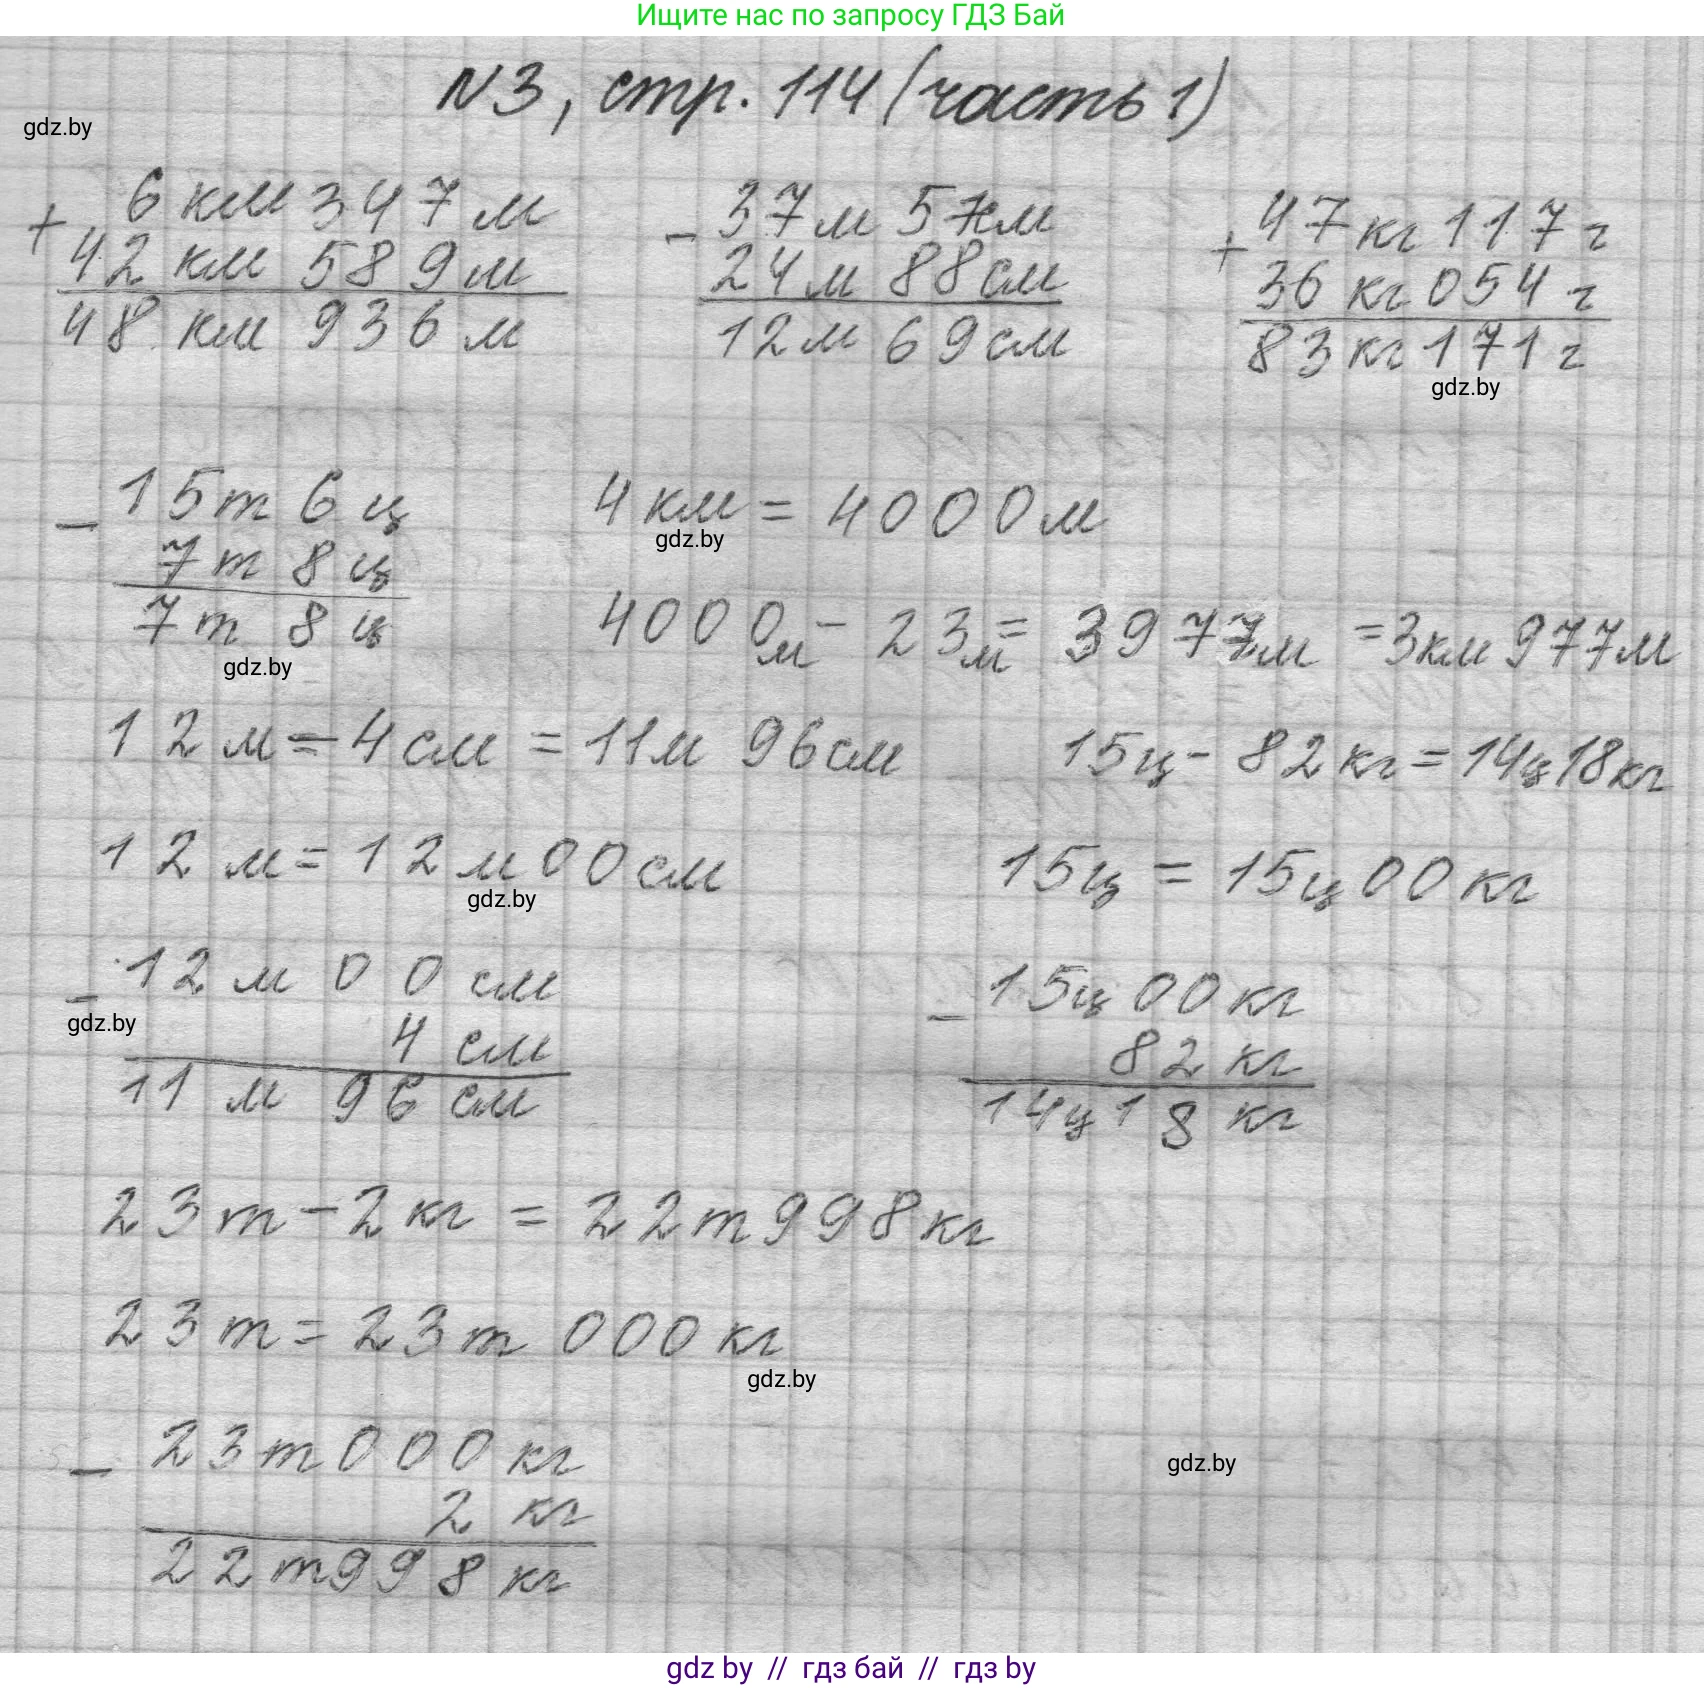 Ищите нас по запросу ГДЗ Бай
N3, стр. 114 (часть 1)
gdz.by
+ 6 км 347 м
42 км 589 м
48 км 936 м
- 37 м 57 см
24 м 88 см
12 м 69 см
+ 47 кг 117 г
36 кг 054 г
83 кг 171 г
gdz.by
- 15 т 6 ц
7 т 8 ц
7 т 8 ц
gdz.by
4 км = 4000 м
gdz.by
4000 м - 23 м = 3977 м = 3 км 977 м
12 м - 4 см = 11 м 96 см
15 ц - 82 кг = 14 ц 18 кг
12 м = 12 м 00 см
gdz.by
15 ц = 15 ц 00 кг
- 12 м 00 см
gdz.by
4 см
11 м 96 см
- 15 ц 00 кг
82 кг
14 ц 18 кг
23 т - 2 кг = 22 т 998 кг
23 т = 23 т 000 кг
gdz.by
- 23 т 000 кг
2 кг
22 т 998 кг
gdz.by
gdz by // гдз бай // гдз by